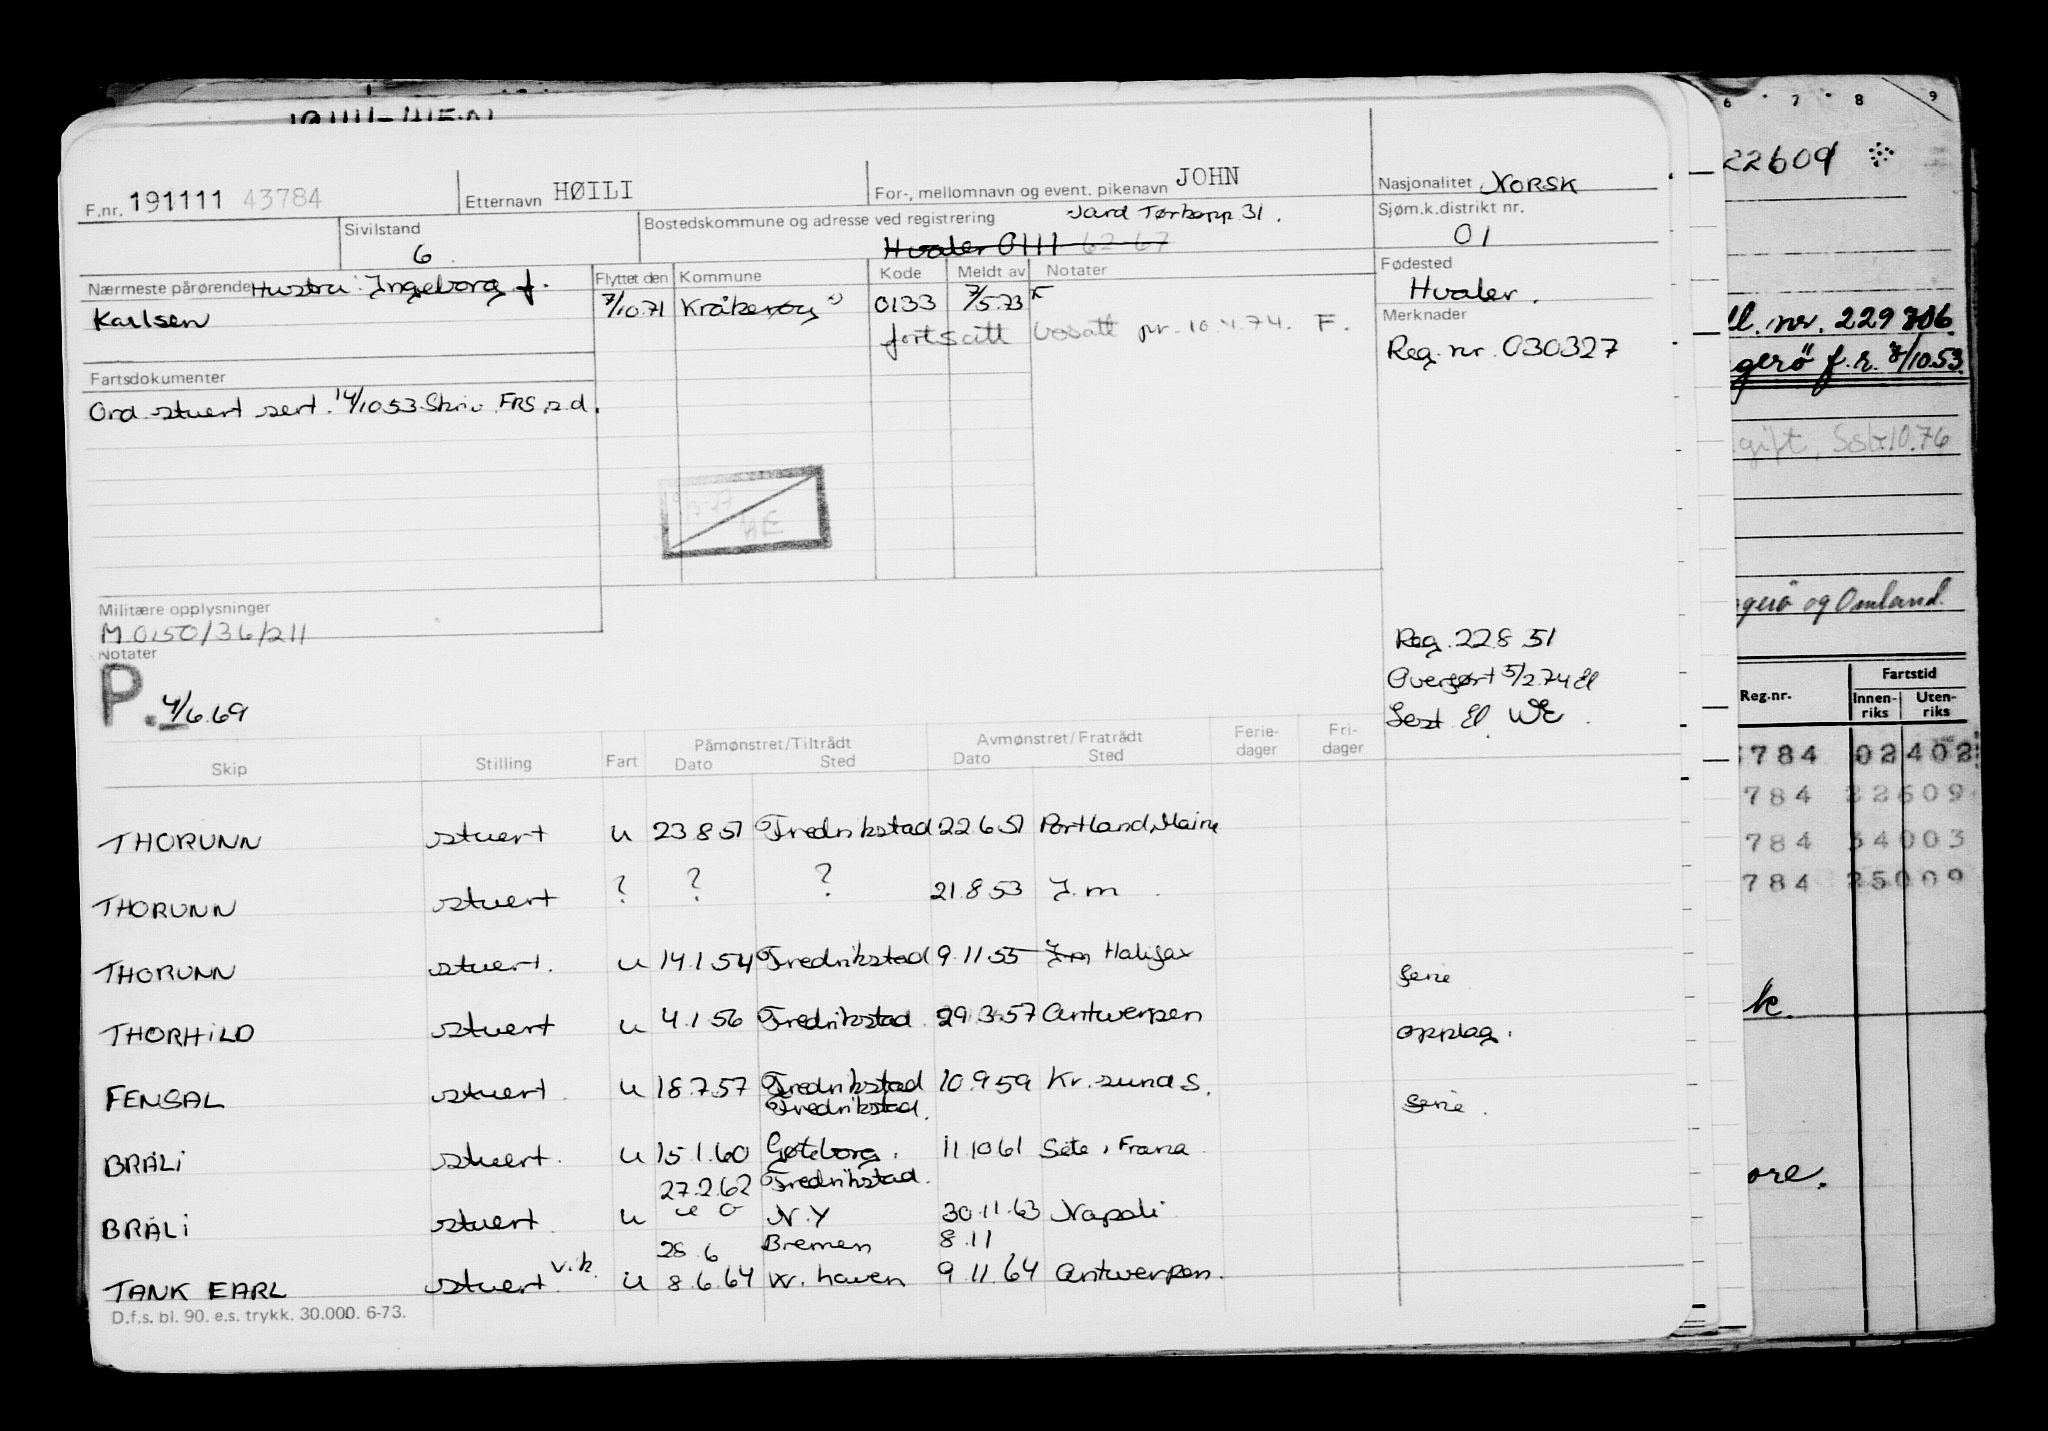 F.nr. 191111 43784 Etternavn HØILI For-, mellomnavn og event. pikenavn JOHN Nasjonalitet NORSK
Sivilstand 6 Bostedskommune og adresse ved registrering Torkopp 31. Sjøm.k.distrikt nr. 01
Hvaler 0111 62-67
Nærmeste pårørende Hustru: Ingeborg f. Karlsen
Flyttet den Kommune Kode Meldt av Notater
7/10.71 Kråkerøy 0133 7/5.73
fortsatt bosatt pr. 10.4.74. F.
Fødested
Hvaler.
Merknader
Reg. nr. 030327
Fartsdokumenter
Ord. stuert sert. 14/10 53 Skriv FRS s.d.
Militære opplysninger
M 0150/36/211
Notater
P. 4/6.69
Reg. 22 8 51
Overført 5/2 74 El
Lest El. WE.
Skip Stilling Fart Påmønstret/Tiltrådt Dato Sted Avmønstret/Fratrådt Dato Sted Ferie-dager Fri-dager
THORUNN stuert u 23 8 51 Fredrikstad 22 6 51 Portland, Maine
THORUNN stuert ? ? ? 21.8 53 J.m.
THORUNN stuert. u 14.1.54 Fredrikstad 9.11 55 J.m Halifax ferie
THORHILD stuert u 4.1 56 Fredrikstad 29.3.57 Antwerpen opplag.
FENSAL stuert. u 18.7.57 Fredrikstad 10.9 59 Kr.sund S. ferie.
Fredrikstad.
BRÅLI stuert. u 15.1.60 Gøteborg. 11.10 61 Sète, France
27.2.62 Fredrikstad.
BRÅLI stuert. u N.Y 30.11.63 Napoli
28.6 Bremen 8.11
TANK EARL stuert v.k. u 8.6.64 W. haven 9.11.64 Antwerpen.
D.f.s. bl. 90. e.s. trykk. 30.000. 6-73.
6 7 8 9
22609
nr. 229706
f.r. 7/10.53
gift, 10.76
og Omland.
Reg.nr. Fartstid
Innen-riks Uten-riks
784 02 402
784 22609
784 34003
784 25009
k.
ore.